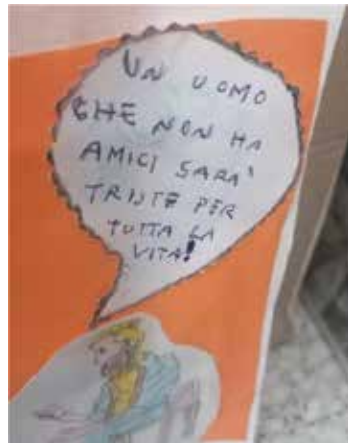 UN UOMO
CHE NON HA
AMICI SARA'
TRISTE PER
TUTTA LA
VITA!